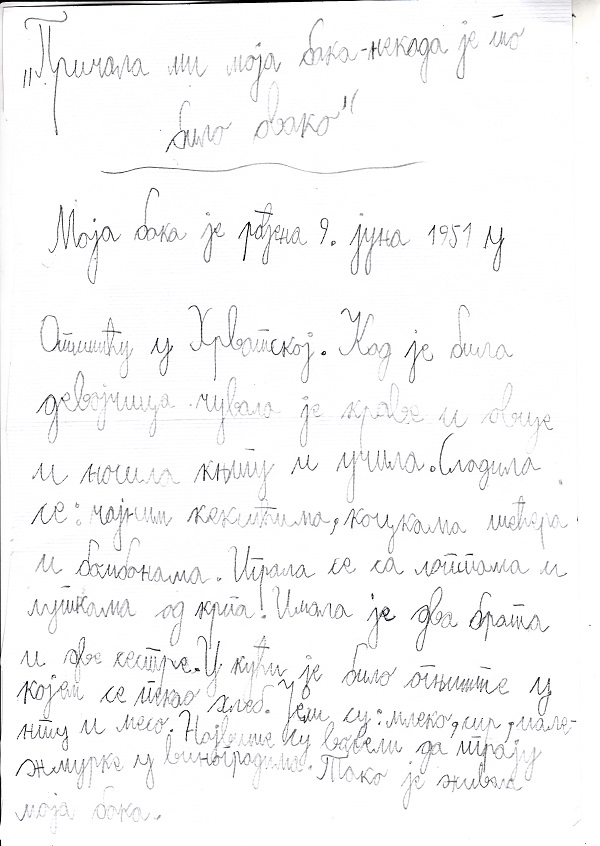 „Причала ми моја бака-некада је то
било овако"
Моја бака је рођена 9. јуна 1951 у
Отишићу у Хрватској. Кад је била
девојчица чувала је краве и овце
и носила књигу и учила. Сладила
се: чајним кексићима, коцкама шећера
и бомбонама. Играла се са лоптама и
луткама од крпа! Имала је два брата
и две сестре. У кући је било огњиште у
којем се пекао хлеб. Јели су: млеко, сир, пале-
нту и месо. Највише су волели да играју
жмурке у виноградима. Тако је живела
моја бака.